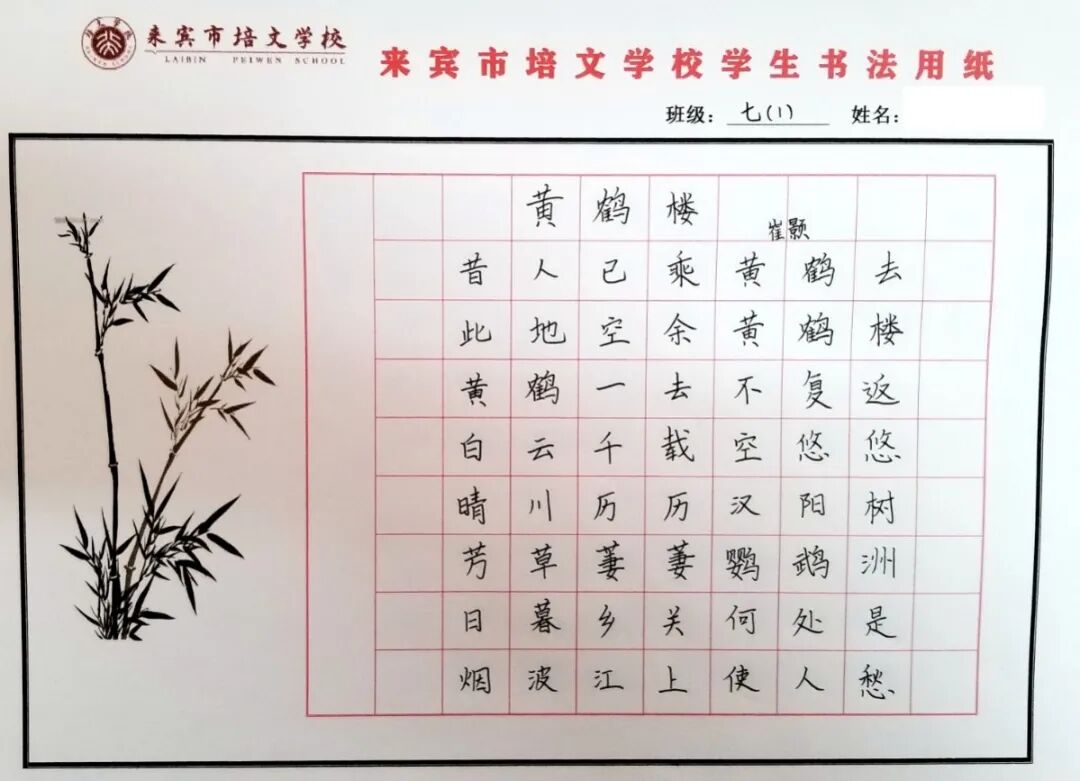 来宾市培文学校
LAIBIN PEIWEN SCHOOL
来宾市培文学校学生书法用纸
班级：七(1) 姓名：
黄鹤楼
崔颢
昔人已乘黄鹤去
此地空余黄鹤楼
黄鹤一去不复返
白云千载空悠悠
晴川历历汉阳树
芳草萋萋鹦鹉洲
日暮乡关何处是
烟波江上使人愁